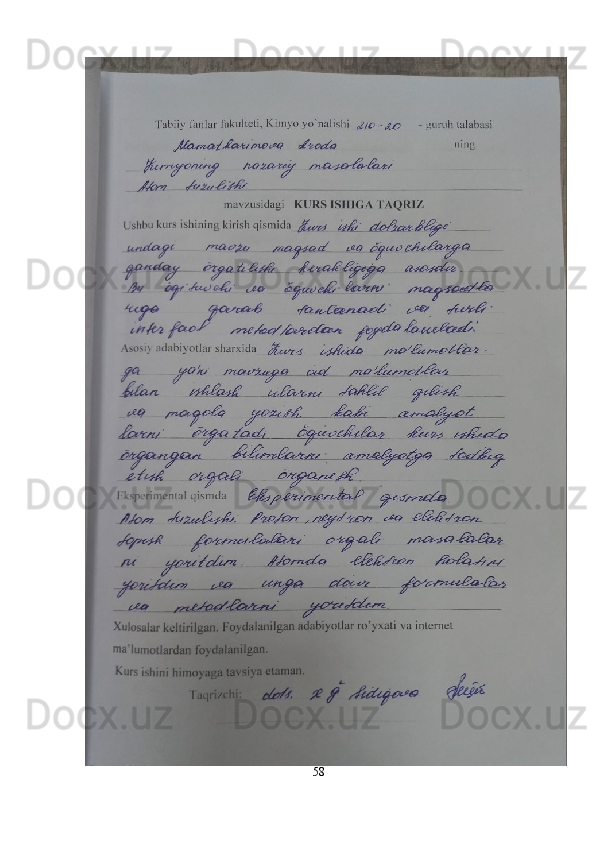 Docx.uz Docx.uz Docx.uz
Tabiiy fanlar fakulteti, Kimyo yo`nalishi 210-20 - guruh talabasi
Mamatkarimova Iroda ning
Kimyoning nazariy masalalari
Atom tuzulishi
mavzusidagi KURS ISHIGA TAQRIZ
Ushbu kurs ishining kirish qismida Kurs ishi dolzarbligi
undagi mavzu maqsad va o'quvchilarga
qanday o'rgatilishi kerakligiga asosdir
Bu o'qituvchi va o'quvchilarni maqsadla
riga qarab tanlanadi va turli
interfaol metodlardan foydalaniladi
Asosiy adabiyotlar sharxida Kurs ishida ma'lumotlar-
ga ya'ni mavzuga oid ma'lumotlar
bilan ishlash ularni tahlil qilish
va maqola yozish kabi amalyot
larni o'rgatadi o'quvchilar kurs ishida
o'rgangan bilimlarni amalyotga tadbiq
etish orqali o'rganish
Eksperimental qismda Eksperimental qismda
Atom tuzulishi. Proton, neytron va elektron
topish formulalari orqali masalalar
ni yoritdim. Atomda elektron holatini
yoritdim va unga doir formulalar
va metodlarni yoritdim
Xulosalar keltirilgan. Foydalanilgan adabiyotlar ro`yxati va internet
ma`lumotlardan foydalanilgan.
Kurs ishini himoyaga tavsiya etaman.
Taqrizchi: dots.
Docx.uz Docx.uz Docx.uz
58